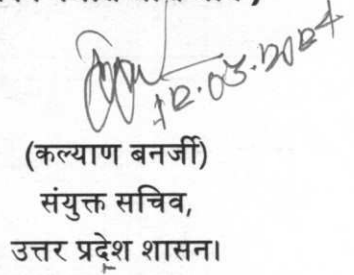 12.03.2024
(कल्याण बनर्जी)
संयुक्त सचिव,
उत्तर प्रदेश शासन।